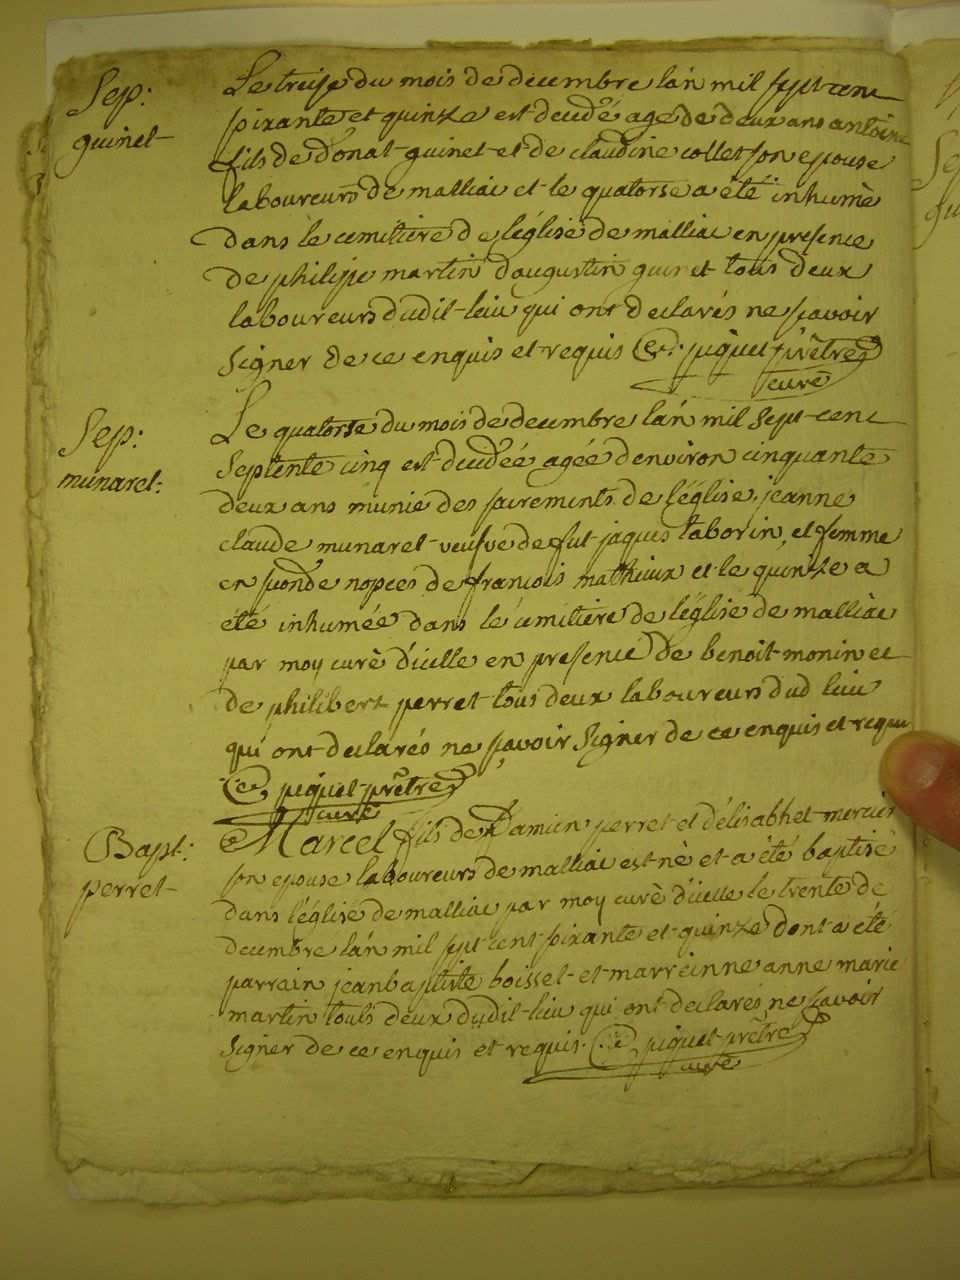 Sep:
guinet
Le treise du mois de decembre l'an mil sept cent
soixante et quinze est decedé agé de deux ans antoine
fils de donat guinet et de claudine collet son epouse
laboureurs de malliac et le quatorse a été inhumè
dans le cemitiere de l'églisé de malliac en presence
de philippe martin d'augustin guinet tous deux
laboureurs dudit lieu qui ont declarés ne savoir
signer de ce enquis et requis piquet prêtre
curé
Sep:
munaret:
Le quatorse du mois de decembre l'an mil sept cent
septente cinq est decedée agée d'environ cinquante
deux ans munie des sacrements de l'église jeanne
claude munaret veufve de fut jaques taborin, et femme
en seconde nopces de francois mathieux et le quinze a
été inhumée dans le cemitiere de l'églisé de malliac
par moy curè d'icelle en presence de benoit monin et
de philibert perret tous deux laboureurs dud lieu
qui ont declarés ne savoir signer de ce enquis et requis
piquet prêtre
curé
Bapt:
perret
Marcel fils de Damien perret et d'élisabhet mercier
son epouse laboureurs de malliac est nè et a été baptisé
dans l'églisé de malliac par moy curè d'icelle le trente de
decembre l'an mil sept cent soixante et quinze dont a été
parrain jean baptiste boisset et marreinne anne marie
martin touts deux dudit lieu qui ont declarés ne savoir
signer de ce enquis et requis. piquet prêtre
curé